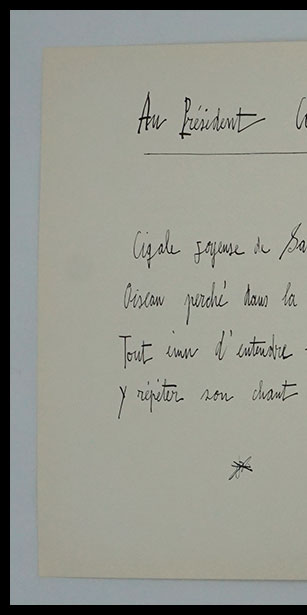 Au Président
Cigale joyeuse de
Oiseau perché dans la
Tout ému d'entendre
Y répéter son chant